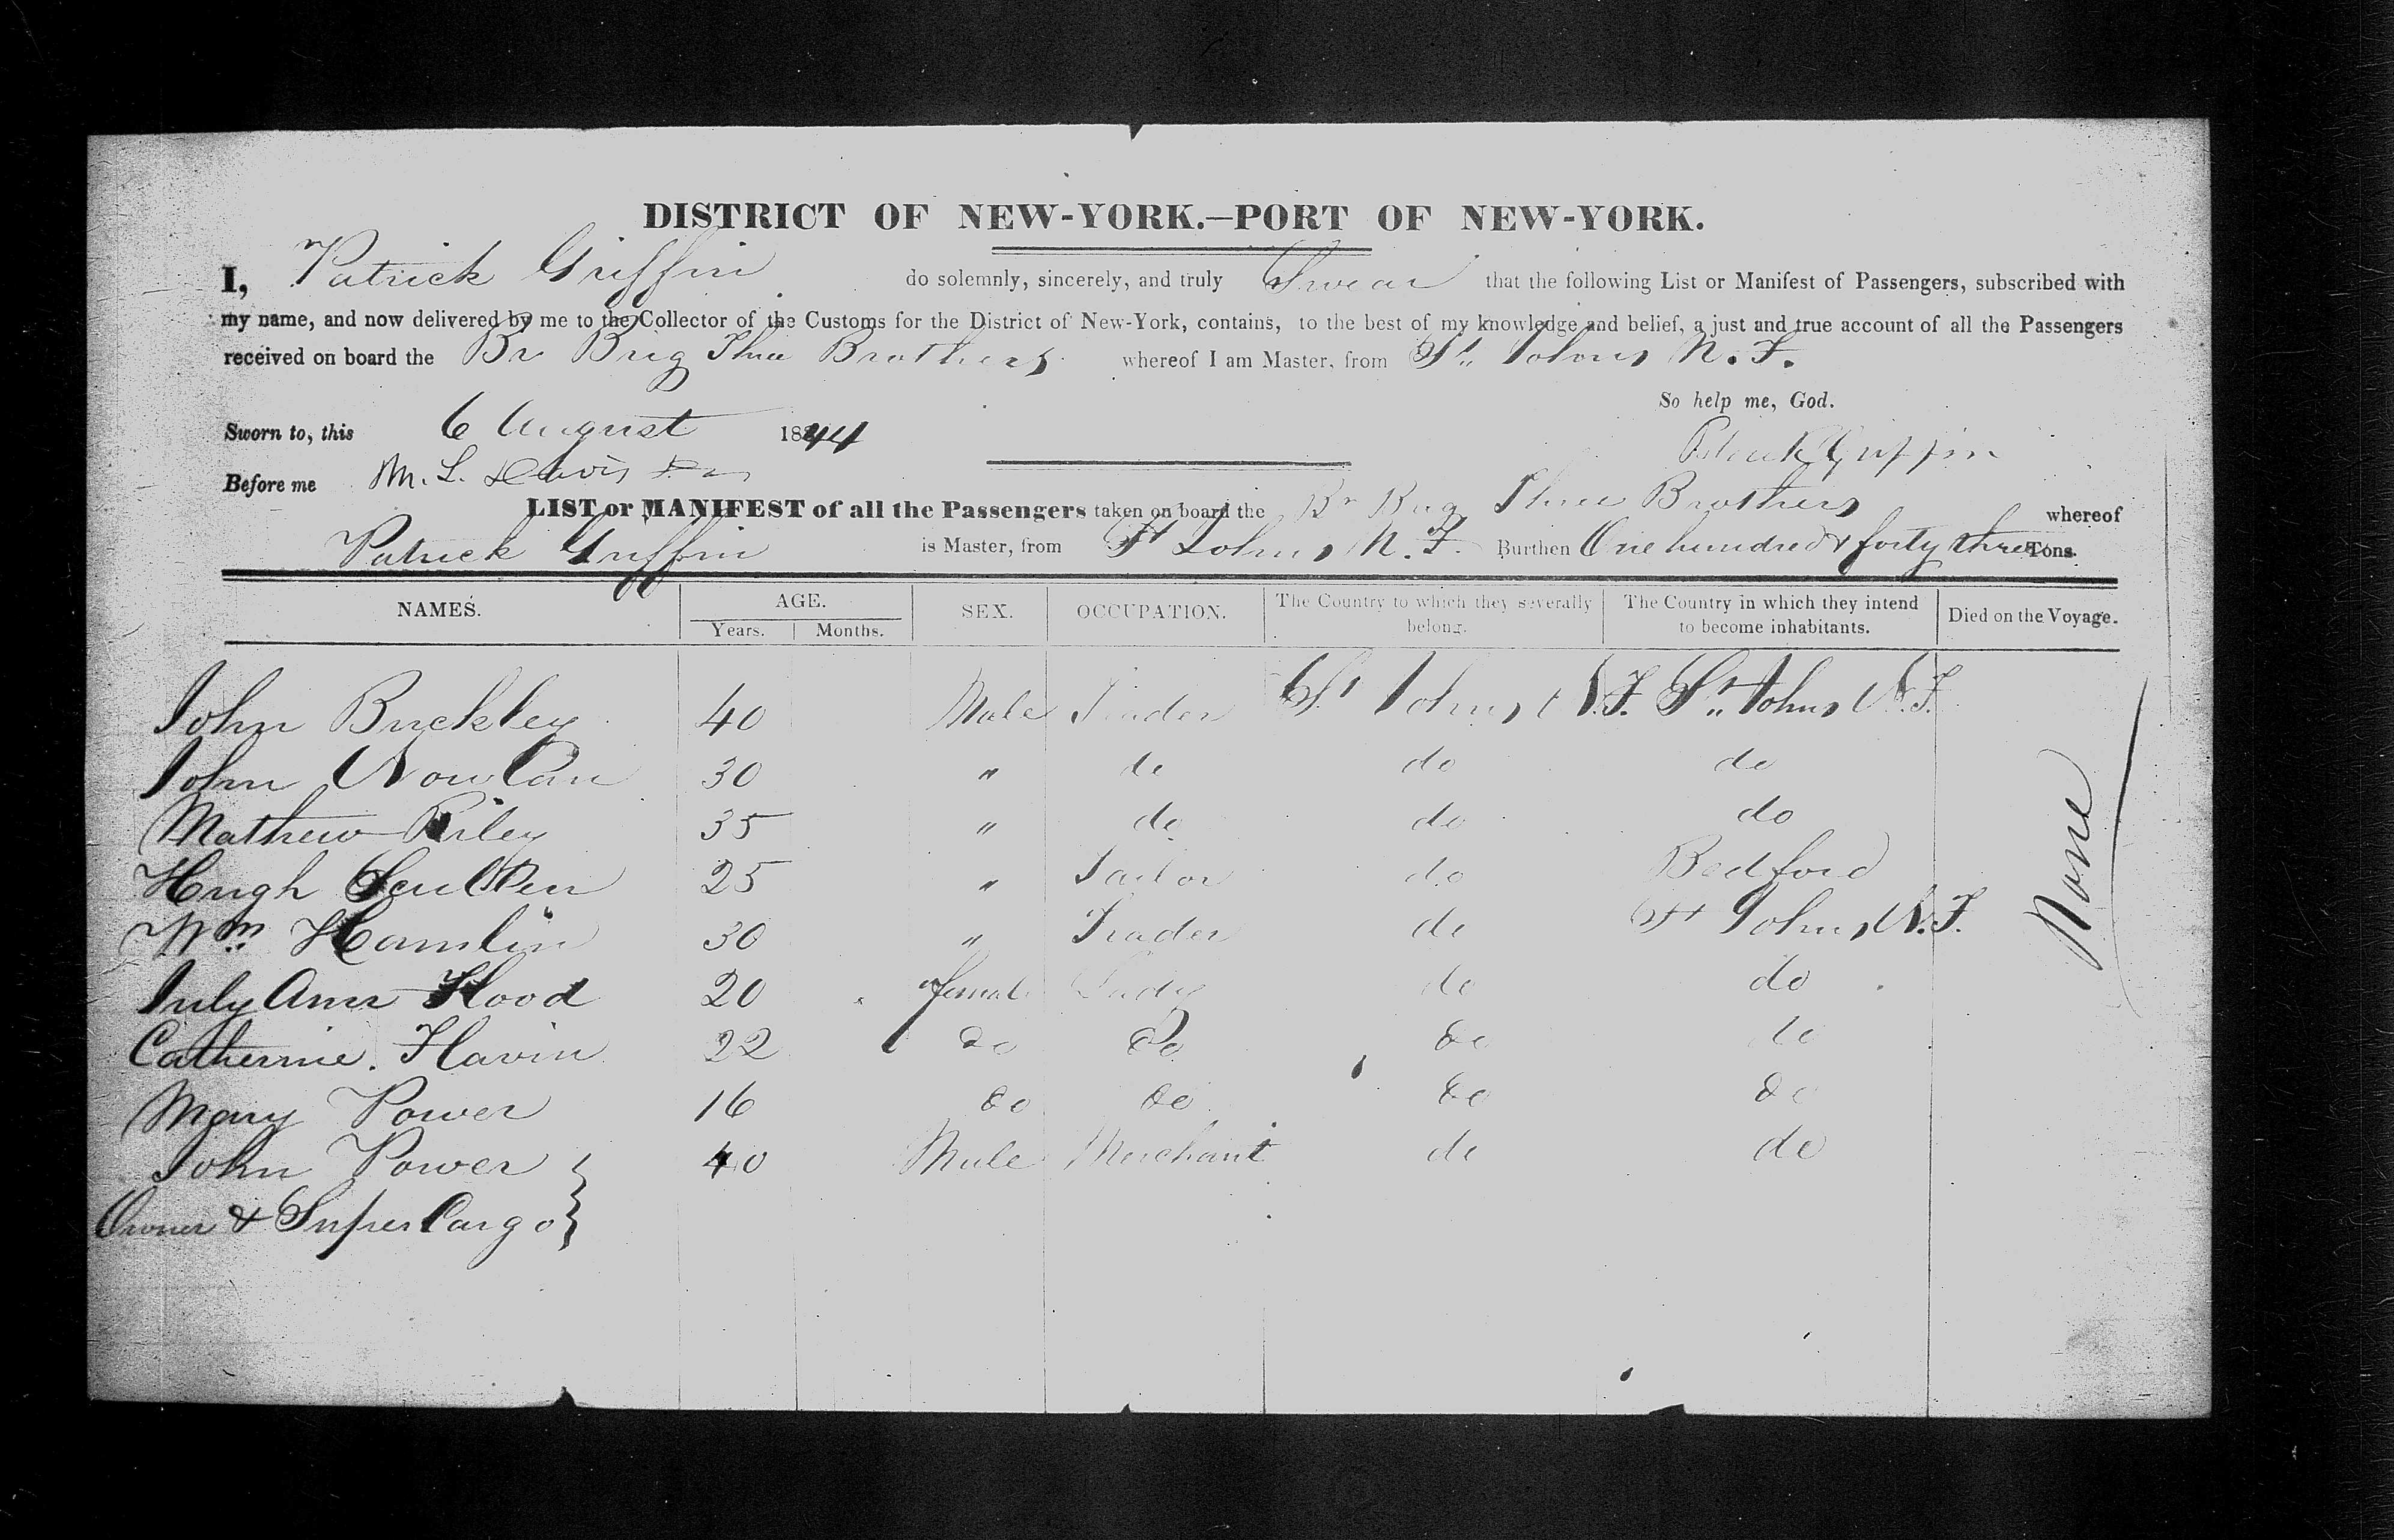 DISTRICT OF NEW-YORK.—PORT OF NEW-YORK.
I, Patrick Griffin do solemnly, sincerely, and truly Swear that the following List or Manifest of Passengers, subscribed with
my name, and now delivered by me to the Collector of the Customs for the District of New-York, contains, to the best of my knowledge and belief, a just and true account of all the Passengers
received on board the Br Brig Three Brothers whereof I am Master, from St. Johns N.F.
So help me, God.
Sworn to, this 6 August 1844
Patrick Griffin
Before me M. L. Davis
LIST or MANIFEST of all the Passengers taken on board the Br Brig Three Brothers whereof
Patrick Griffin is Master, from St Johns N.F. Burthen One hundred & forty three Tons.
NAMES. AGE. SEX. OCCUPATION. The Country to which they severally belong. The Country in which they intend to become inhabitants. Died on the Voyage.
Years. Months.
John Buckley 40 Male Trader St Johns N.F. St. Johns N.F.
John Nowlan 30 " do do do
Mathew Riley 35 " do do do
Hugh 25 " Tailor do Bedford
Wm Hamlin 30 " Trader do St Johns N.F.
July Ann Hood 20 female Lady do do
Catherine Flavin 22 do do do do
Mary Power 16 do do do do
John Power 40 Male Merchant do do
Owner & Super Cargo
None